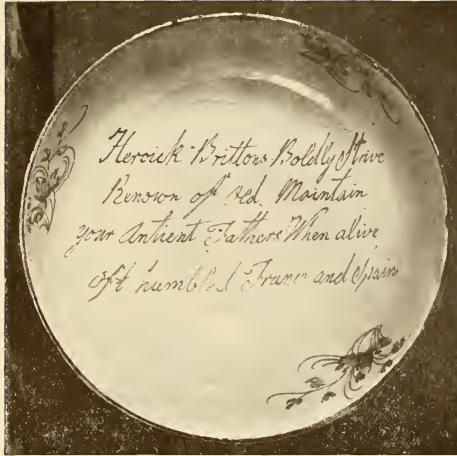 Heroick Brittons Boldly Strive
Renown of Maintain
your Antient Fathers When alive
oft humbled France and Spain